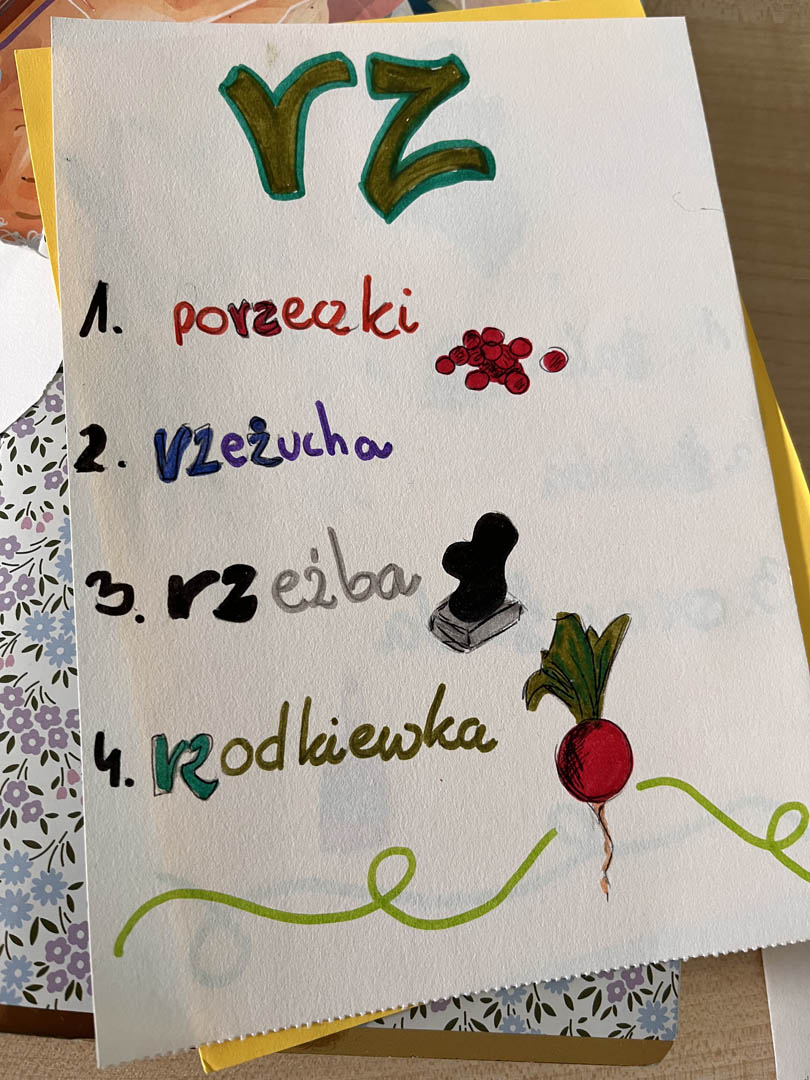 rz
1. porzeczki
2. rzeżucha
3. rzeźba
4. rzodkiewka